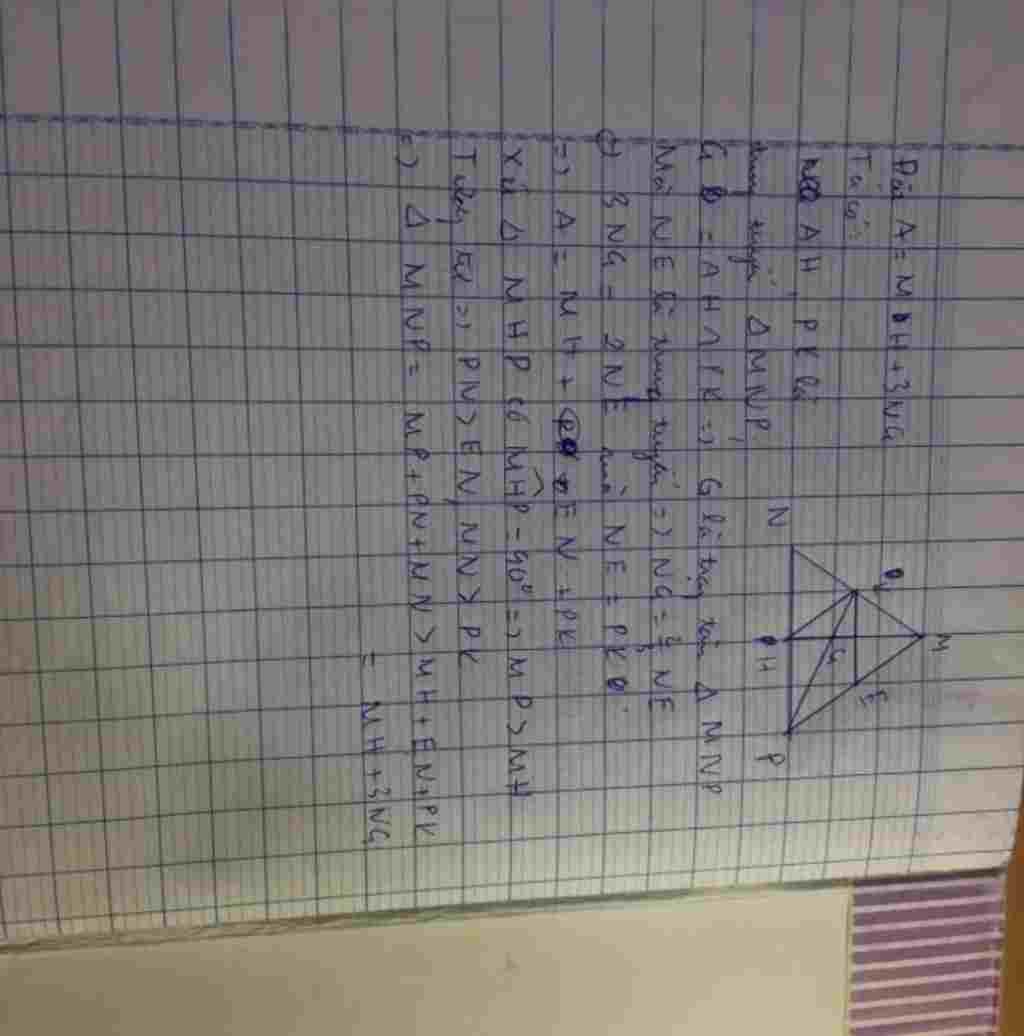 Đặt A = MH + 3NG
Ta có:
AH, PK là
trung tuyến Δ MNP.
G = AH ∧ PK => G là trọng tâm Δ MNP
Mà NE là trung tuyến => NG = 2/3 NE
=) 3NG = 2NE mà NE = PK
=) A = MH + EN + PK
Xét Δ MHP có MHP = 90° => MP > MH
=> PN > EN, NN > PK
=) Δ MNP = MP + PN + NN > MH + EN + PK
= MH + 3NG
M
E
G
N
H
P